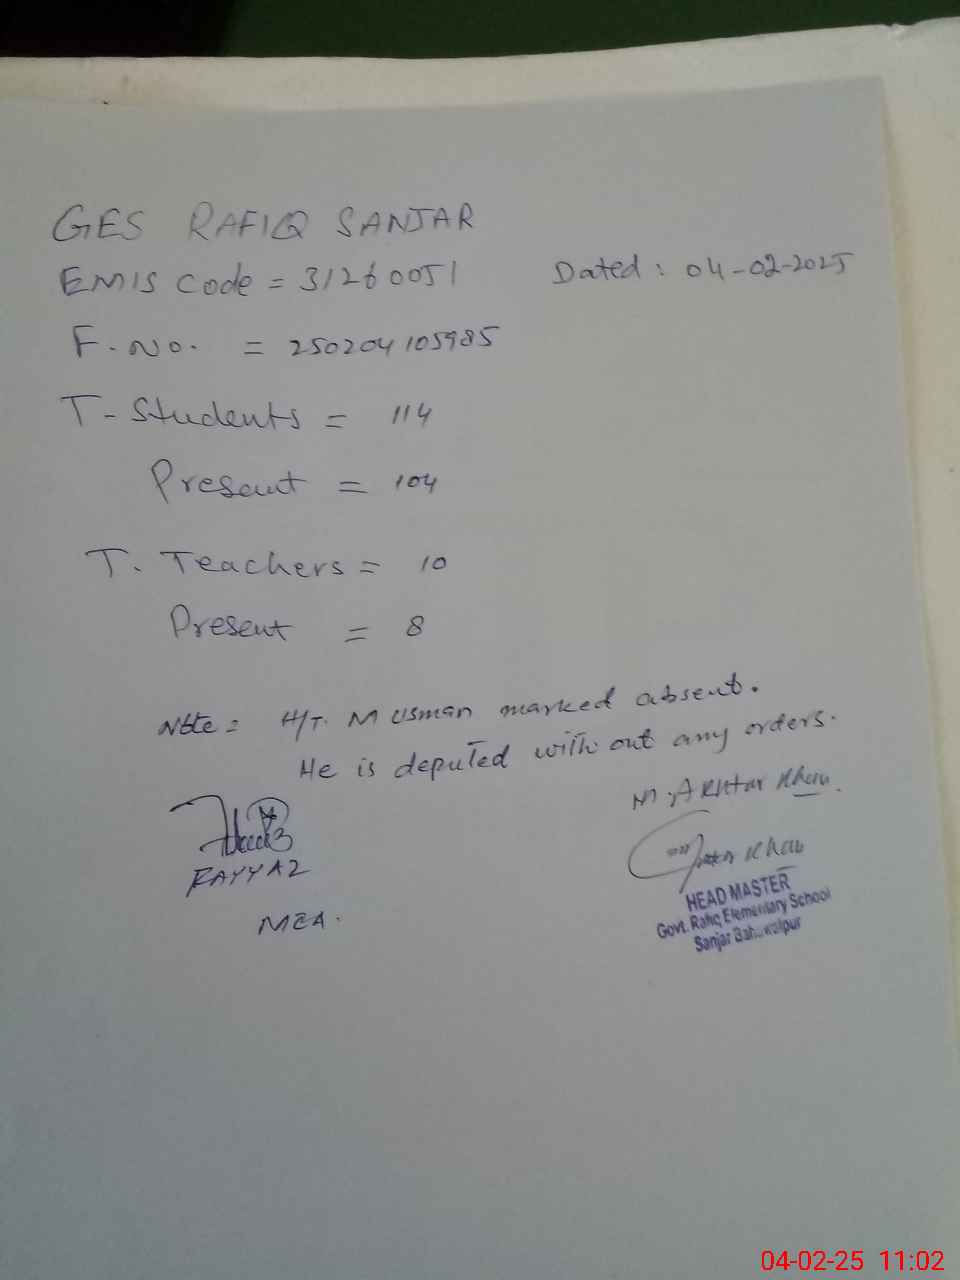 GES RAFIQ SANJAR
EMIS Code = 31260051 Dated: 04-02-2025
F. No. = 250204105985
T- Students = 114
Present = 104
T. Teachers = 10
Present = 8
Note = H/T. M Usman marked absent.
He is deputed with out any orders.
M. Akhtar Khan.
Khan
FAYYAZ
MEA.
HEAD MASTER
Govt. Rafiq Elementary School
Sanjar Bahawalpur
04-02-25 11:02